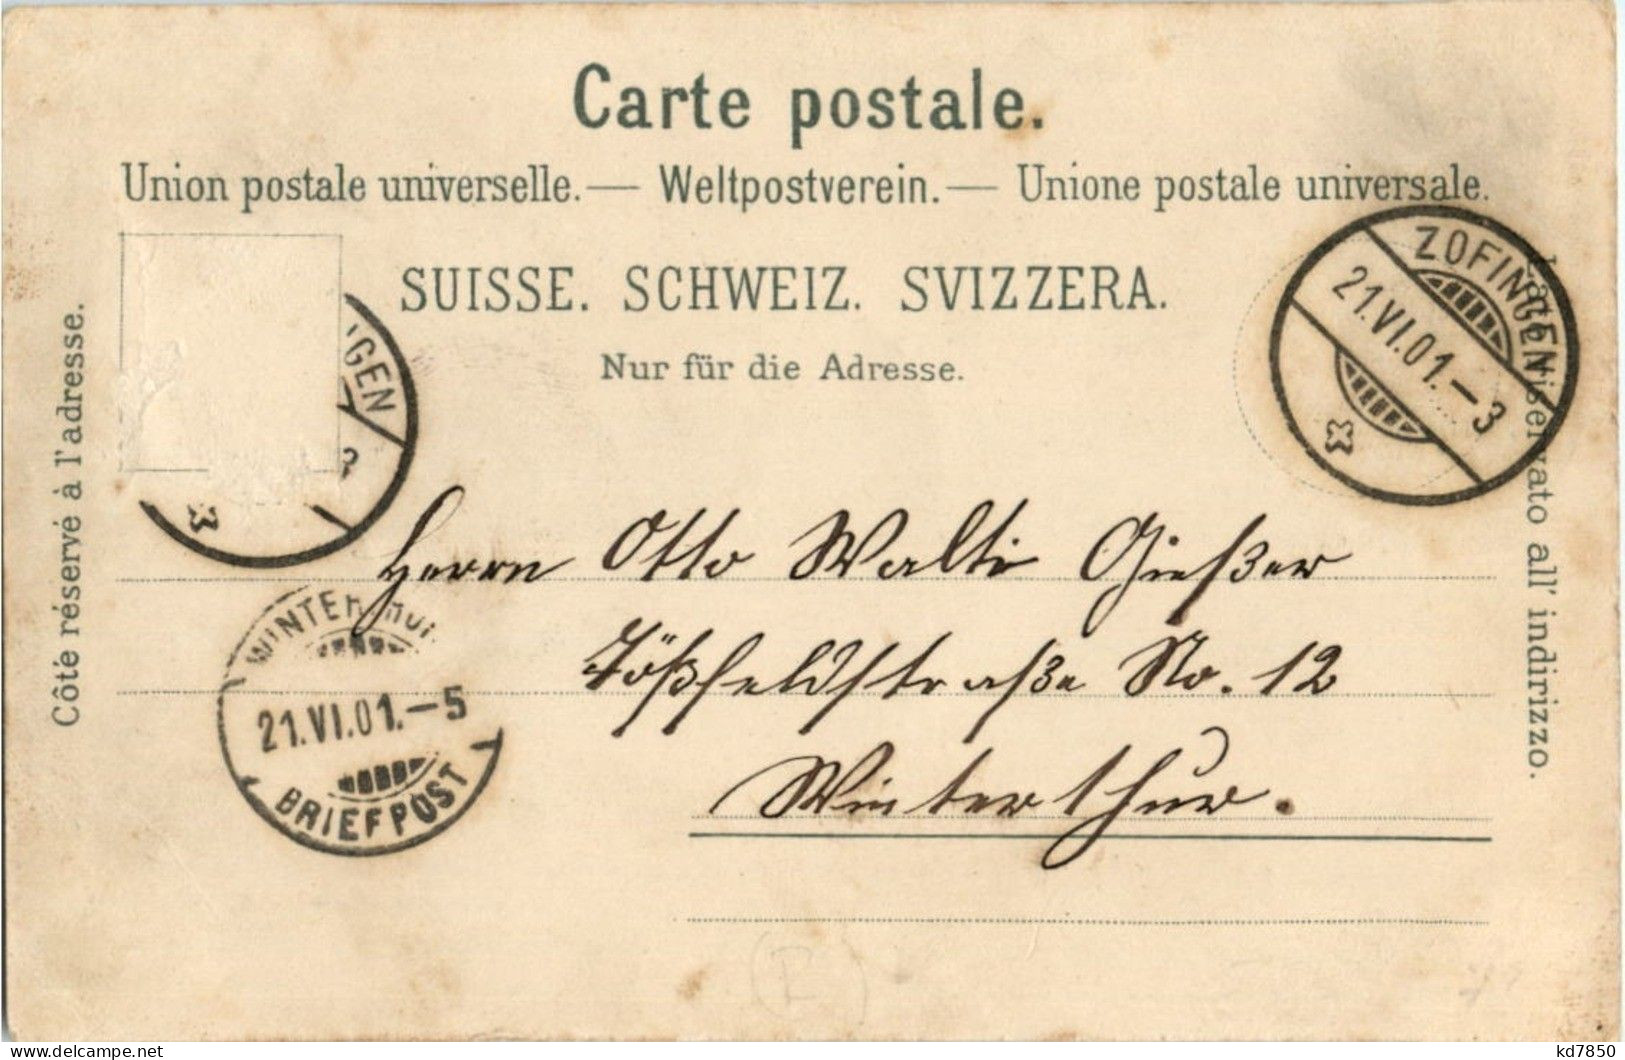 Carte postale.
Union postale universelle. — Weltpostverein. — Unione postale universale.
SUISSE. SCHWEIZ. SVIZZERA.
Nur für die Adresse.
Côté réservé à l'adresse.
riservato all' indirizzo.
ZOFINGEN
21.VI.01.–3
NGEN
3
Herrn Otto Walti Gießer
Tößfeldstraße No. 12
Winterthur.
WINTERTHUR
21.VI.01.–5
BRIEFPOST
kd7850